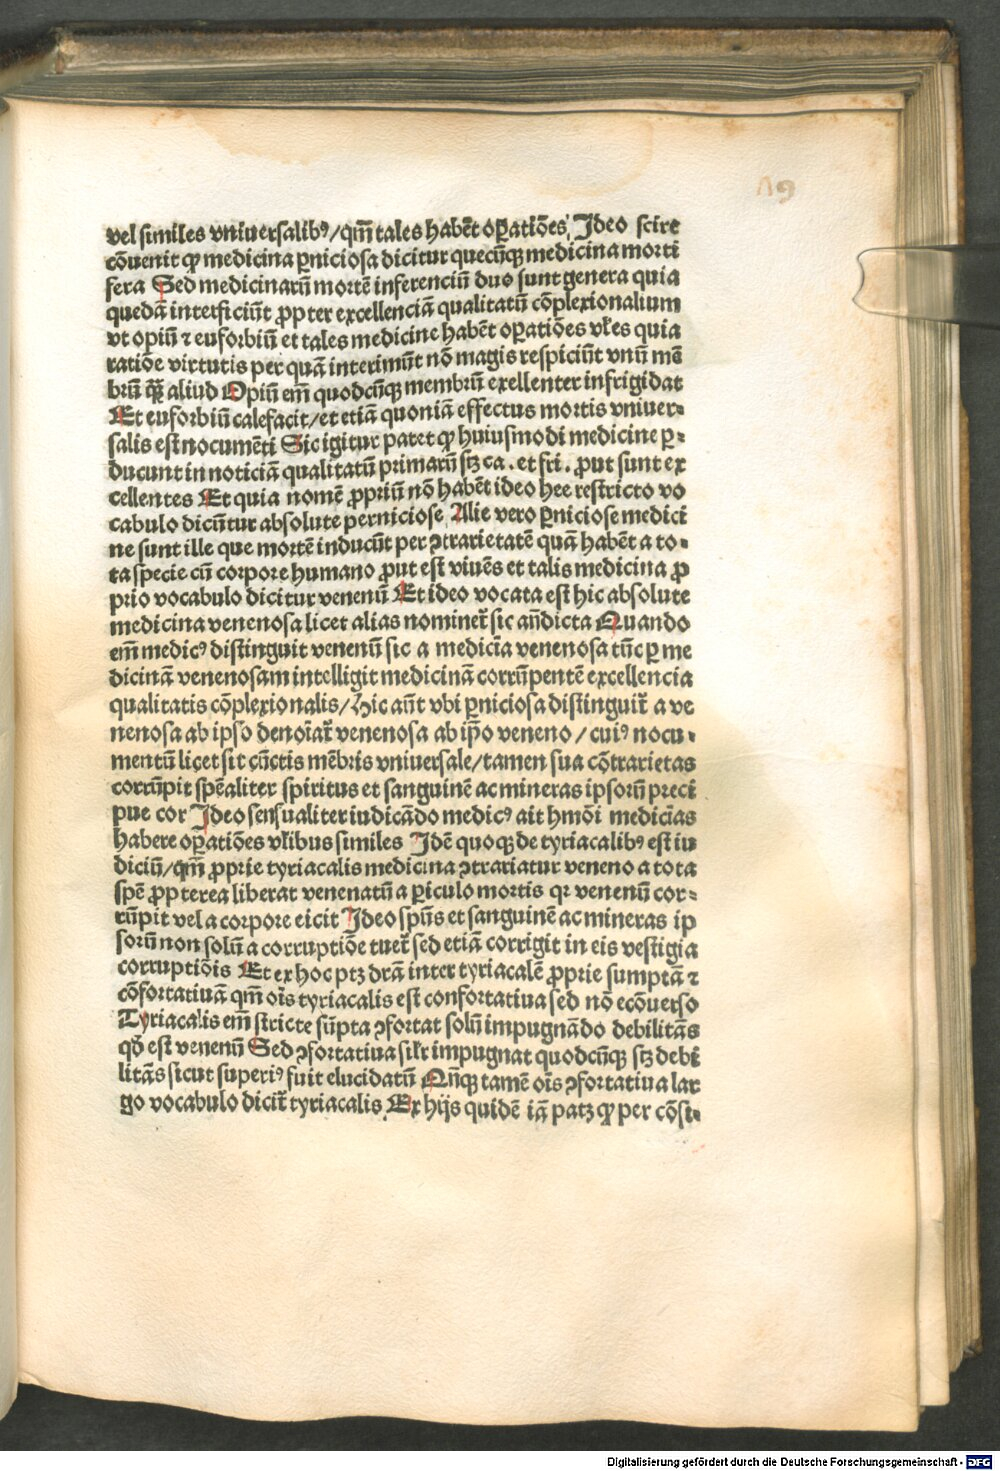 vel similes vniuersalibꝰ/qm̄ tales habēt oꝑatiōes. Ideo scire
cōuenit ꝙ medicina ꝑniciosa dicitur quecūqꝫ medicina morti
fera Sed medicinarū mortē inferenciū duo sunt genera quia
quedā interficiūt ꝓpter excellenciā qualitatū cōplexionalium
vt opiū ⁊ euforbiū et tales medicine habēt oꝑatiōes vl̄es quia
ratiōe virtutis per quā interimūt nō magis respiciūt vnū mē
brū qꝫ̄ aliud Opiū em̄ quodcūqꝫ membrū exellenter infrigidat
Et euforbiū calefacit/et etiā quoniā effectus mortis vniuer⸗
salis est nocumēti Sic igitur patet ꝙ huiusmodi medicine ꝑ⸗
ducunt in noticiā qualitatū primarū sꝫ ca. et fri. ꝓut sunt ex
cellentes Et quia nomē ꝓpriū nō habēt ideo hee restricto vo
cabulo dicūtur absolute perniciose Alie vero ꝑniciose medici
ne sunt ille que mortē inducūt per ꝯtrarietatē quā habēt a to⸗
ta specie cū corpore humano ꝓut est viuēs et talis medicina ꝓ
prio vocabulo dicitur venenū Et ideo vocata est hic absolute
medicina venenosa licet alias nominet᷑ sic an̄dicta Quando
em̄ medicꝰ distinguit venenū sic a medicīa venenosa tūc ꝑ me
dicinā venenosam intelligit medicinā corrūpentē excellencia
qualitatis cōplexionalis/Hic aūt vbi ꝑniciosa distinguit᷑ a ve
nenosa ab ipso denoīat᷑ venenosa ab ip̄o veneno/cuiꝰ nocu⸗
mentū licet sit cūctis mēbris vniuersale/tamen sua cōtrarietas
corrūpit spēaliter spiritus et sanguinē ac mineras ipsorū preci
pue cor Ideo sensualiter iudicādo medicꝰ ait hmōi medicīas
habere oꝑatiōes vl̄ibus similes Idē quoqꝫ de tyriacalibꝰ est iu
diciū/qm̄ ꝓprie tyriacalis medicina ꝯtrariatur veneno a tota
spē ꝓpterea liberat venenatū a ꝑiculo mortis qꝛ venenū cor⸗
rūpit vel a corpore eicit Ideo spūs et sanguinē ac mineras ip
sorū non solū a corruptiōe tuet᷑ sed etiā corrigit in eis vestigia
corruptiōis Et ex hoc ptꝫ drām inter tyriacalē ꝓprie sumptā ⁊
cōfortatiuā qm̄ oīs tyriacalis est confortatiua sed nō ecōuerso
Tyriacalis em̄ stricte sūpta ꝯfortat solū impugnādo debilitās
qd̄ est venenū Sed ꝯfortatiua sil̄r impugnat quodcūqꝫ sꝫ debi
litās sicut superiꝰ fuit elucidatū Qn̄qꝫ tamē oīs ꝯfortatiua lar
go vocabulo dicit᷑ tyriacalis Ex hijs quidē iā patꝫ ꝙ per cōsi⸗
Digitalisierung gefördert durch die Deutsche Forschungsgemeinschaft - DFG